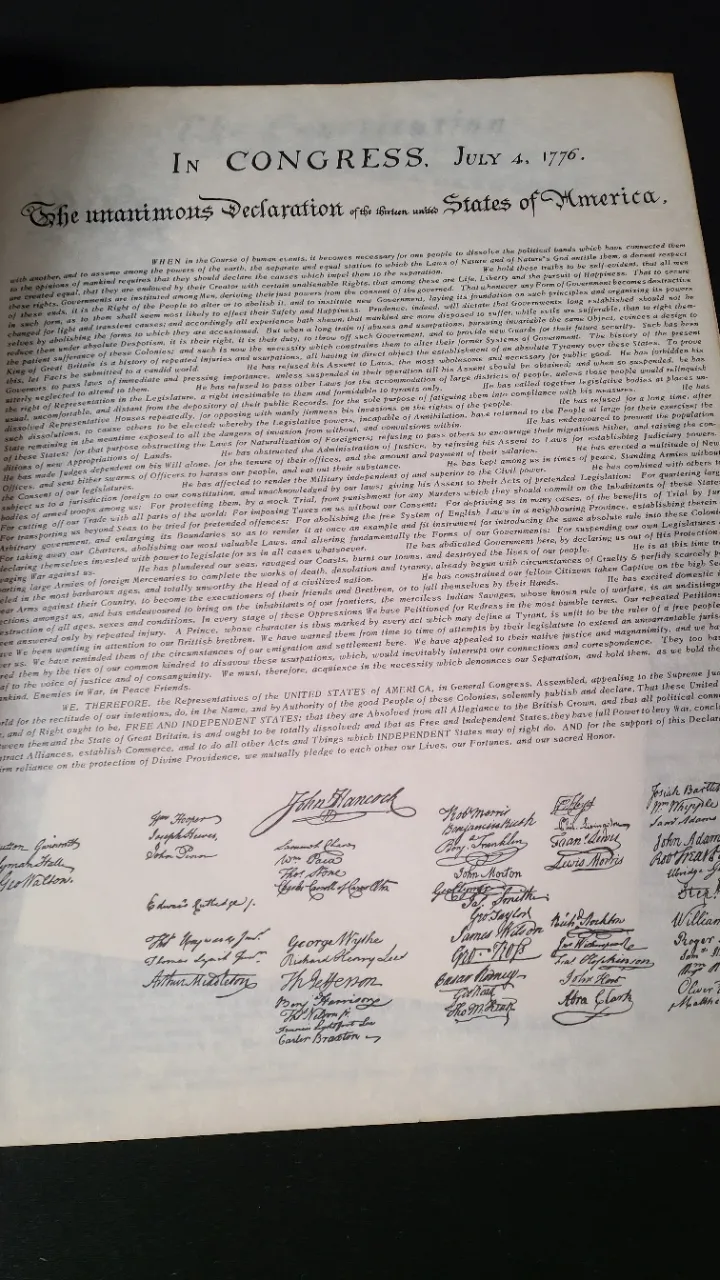 IN CONGRESS, JULY 4, 1776.
The unanimous Declaration of the thirteen united States of America,
WHEN in the Course of human events, it becomes necessary for one people to dissolve the political bands which have connected them
with another, and to assume among the powers of the earth, the separate and equal station to which the Laws of Nature and of Nature's God entitle them, a decent respect
to the opinions of mankind requires that they should declare the causes which impel them to the separation. We hold these truths to be self-evident, that all men
are created equal, that they are endowed by their Creator with certain unalienable Rights, that among these are Life, Liberty and the pursuit of Happiness. That to secure
these rights, Governments are instituted among Men, deriving their just powers from the consent of the governed. That whenever any Form of Government becomes destructive
of these ends, it is the Right of the People to alter or to abolish it, and to institute new Government, laying its foundation on such principles and organizing its powers
in such form, as to them shall seem most likely to effect their Safety and Happiness. Prudence, indeed, will dictate that Governments long established should not be
changed for light and transient causes; and accordingly all experience hath shewn, that mankind are more disposed to suffer, while evils are sufferable, than to right them-
selves by abolishing the forms to which they are accustomed. But when a long train of abuses and usurpations, pursuing invariably the same Object, evinces a design to
reduce them under absolute Despotism, it is their right, it is their duty, to throw off such Government, and to provide new Guards for their future security. Such has been
the patient sufferance of these Colonies; and such is now the necessity which constrains them to alter their former Systems of Government. The history of the present
King of Great Britain is a history of repeated injuries and usurpations, all having in direct object the establishment of an absolute Tyranny over these States. To prove
this, let Facts be submitted to a candid world. He has refused his Assent to Laws, the most wholesome and necessary for public good. He has forbidden his
Governors to pass laws of immediate and pressing importance, unless suspended in their operation till his Assent should be obtained; and when so suspended, he has
utterly neglected to attend to them. He has refused to pass other Laws for the accommodation of large districts of people, unless those people would relinquish
the right of Representation in the Legislature, a right inestimable to them and formidable to tyrants only. He has called together legislative bodies at places un-
usual, uncomfortable, and distant from the depository of their public Records, for the sole purpose of fatiguing them into compliance with his measures. He has
dissolved Representative Houses repeatedly, for opposing with manly firmness his invasions on the rights of the people. He has refused for a long time, after
such dissolutions, to cause others to be elected; whereby the Legislative powers, incapable of Annihilation, have returned to the People at large for their exercise; the
State remaining in the meantime exposed to all the dangers of invasion from without, and convulsions within. He has endeavoured to prevent the population
of these States; for that purpose obstructing the Laws for Naturalization of Foreigners; refusing to pass others to encourage their migrations hither, and raising the con-
ditions of new Appropriations of Lands. He has obstructed the Administration of Justice, by refusing his Assent to Laws for establishing Judiciary powers.
He has made Judges dependent on his Will alone, for the tenure of their offices, and the amount and payment of their salaries. He has erected a multitude of New
Offices, and sent hither swarms of Officers to harass our people, and eat out their substance. He has kept among us in times of peace, Standing Armies without
the Consent of our legislatures. He has affected to render the Military independent of and superior to the Civil power. He has combined with others to
subject us to a jurisdiction foreign to our constitution, and unacknowledged by our laws; giving his Assent to their Acts of pretended Legislation: For quartering large
bodies of armed troops among us: For protecting them, by a mock Trial, from punishment for any Murders which they should commit on the Inhabitants of these States
For cutting off our Trade with all parts of the world: For imposing Taxes on us without our Consent: For depriving us in many cases, of the benefits of Trial by Jury
For transporting us beyond Seas to be tried for pretended offences: For abolishing the free System of English Laws in a neighbouring Province, establishing therein
Arbitrary government, and enlarging its Boundaries so as to render it at once an example and fit instrument for introducing the same absolute rule into these Colonies
taking away our Charters, abolishing our most valuable Laws, and altering fundamentally the Forms of our Governments: For suspending our own Legislatures
declaring themselves invested with power to legislate for us in all cases whatsoever. He has abdicated Government here, by declaring us out of His Protection
waging War against us. He has plundered our seas, ravaged our Coasts, burnt our towns, and destroyed the lives of our people. He is at this time
large Armies of foreign Mercenaries to complete the works of death, desolation and tyranny, already begun with circumstances of Cruelty & perfidy scarcely
in the most barbarous ages, and totally unworthy the Head of a civilized nation. He has constrained our fellow Citizens taken Captive on the high Seas
Arms against their Country, to become the executioners of their friends and Brethren, or to fall themselves by their Hands. He has excited domestic
amongst us, and has endeavoured to bring on the inhabitants of our frontiers, the merciless Indian Savages, whose known rule of warfare, is an undistinguished
destruction of all ages, sexes and conditions. In every stage of these Oppressions We have Petitioned for Redress in the most humble terms. Our repeated Petitions
been answered only by repeated injury. A Prince, whose character is thus marked by every act which may define a Tyrant, is unfit to be the ruler of a free people
We been wanting in attention to our British brethren. We have warned them from time to time of attempts by their legislature to extend an unwarrantable
us. We have reminded them of the circumstances of our emigration and settlement here. We have appealed to their native justice and magnanimity, and we have
them by the ties of our common kindred to disavow these usurpations, which, would inevitably interrupt our connections and correspondence. They too
to the voice of justice and of consanguinity. We must, therefore, acquiesce in the necessity which denounces our Separation, and hold them, as we hold the
mankind, Enemies in War, in Peace Friends.
WE, THEREFORE, the Representatives of the UNITED STATES of AMERICA, in General Congress, Assembled, appealing to the Supreme
for the rectitude of our intentions, do, in the Name, and by Authority of the good People of these Colonies, solemnly publish and declare, That these United
and of Right ought to be, FREE AND INDEPENDENT STATES; that they are Absolved from all Allegiance to the British Crown, and that all political
between them and the State of Great Britain, is and ought to be totally dissolved; and that as Free and Independent States, they have full Power to levy War,
Alliances, establish Commerce, and to do all other Acts and Things which INDEPENDENT States may of right do. AND for the support of this
reliance on the protection of Divine Providence, we mutually pledge to each other our Lives, our Fortunes, and our sacred Honor.
Button Gwinnett
Lyman Hall
Geo Walton.
Wm Hooper
Joseph Hewes,
John Penn
Edward Rutledge /.
Thos Heyward Junr.
Thomas Lynch Junr.
Arthur Middleton
John Hancock
Samuel Chase
Wm Paca
Thos Stone
Charles Carroll of Carrollton
George Wythe
Richard Henry Lee
Th Jefferson
Benj Harrison
Thos Nelson jr.
Francis Lightfoot Lee
Carter Braxton
Robt Morris
Benjamin Rush
Benj. Franklin
John Morton
Geo Clymer
Jas. Smith
Geo. Taylor
James Wilson
Geo. Ross
Caesar Rodney
Geo Read
Tho M:Kean
Phil. Livingston
Lewis Morris
Richd Stockton
Jno Witherspoon
Fras Hopkinson
John Hart
Abra Clark
Josiah Bartlett
Wm Whipple
Saml Adams
John Adams
William
Roger
Oliver